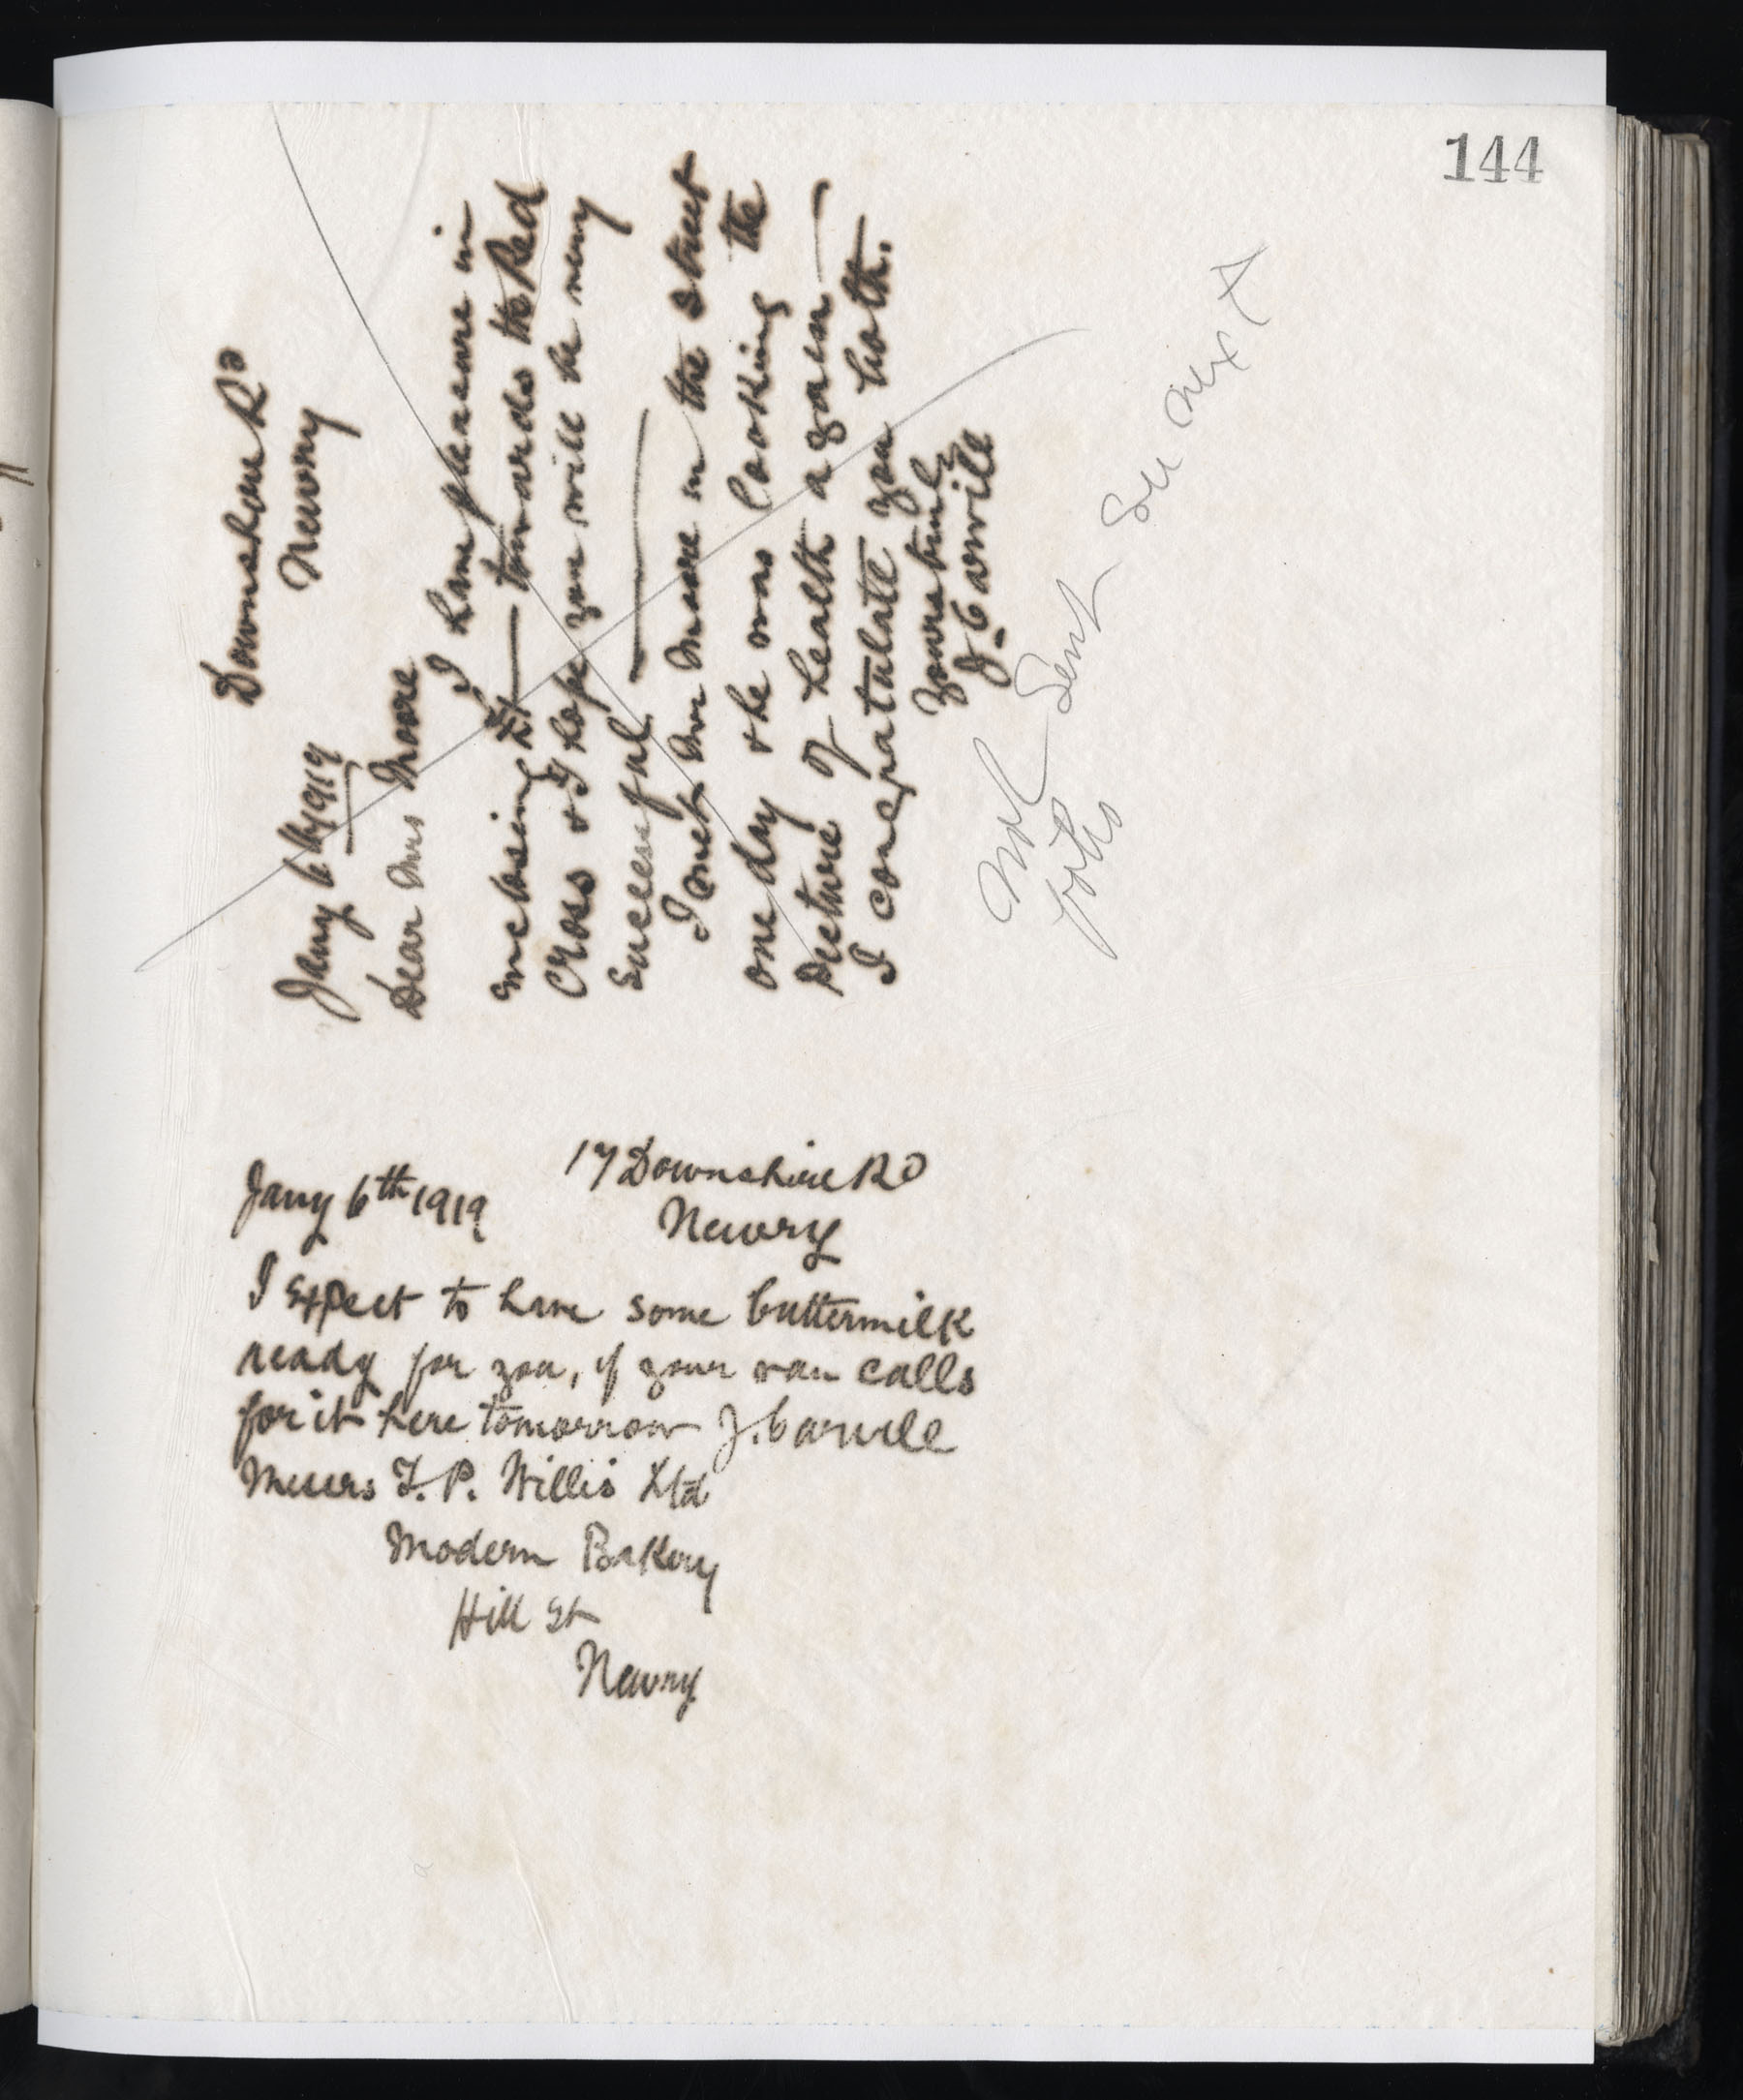 144
Downshire Rd
Newry
Jany 6th 1919
Dear Mrs Moore
I have pleasure in
enclosing £1 — towards the Red
Cross & I hope you will be very
Successful —
I met Mr Moore in the street
one day & he was looking the
Picture of health again —
I congratulate you both.
yours truly
J. Carvill
Not Sent See next
Jany 6th 1919
17 Downshire Rd
Newry
I Expect to have some buttermilk
ready for you, if your van calls
for it here tomorrow J. Carvill
Messrs F. P. Willis Ltd
Modern Bakery
Hill St
Newry